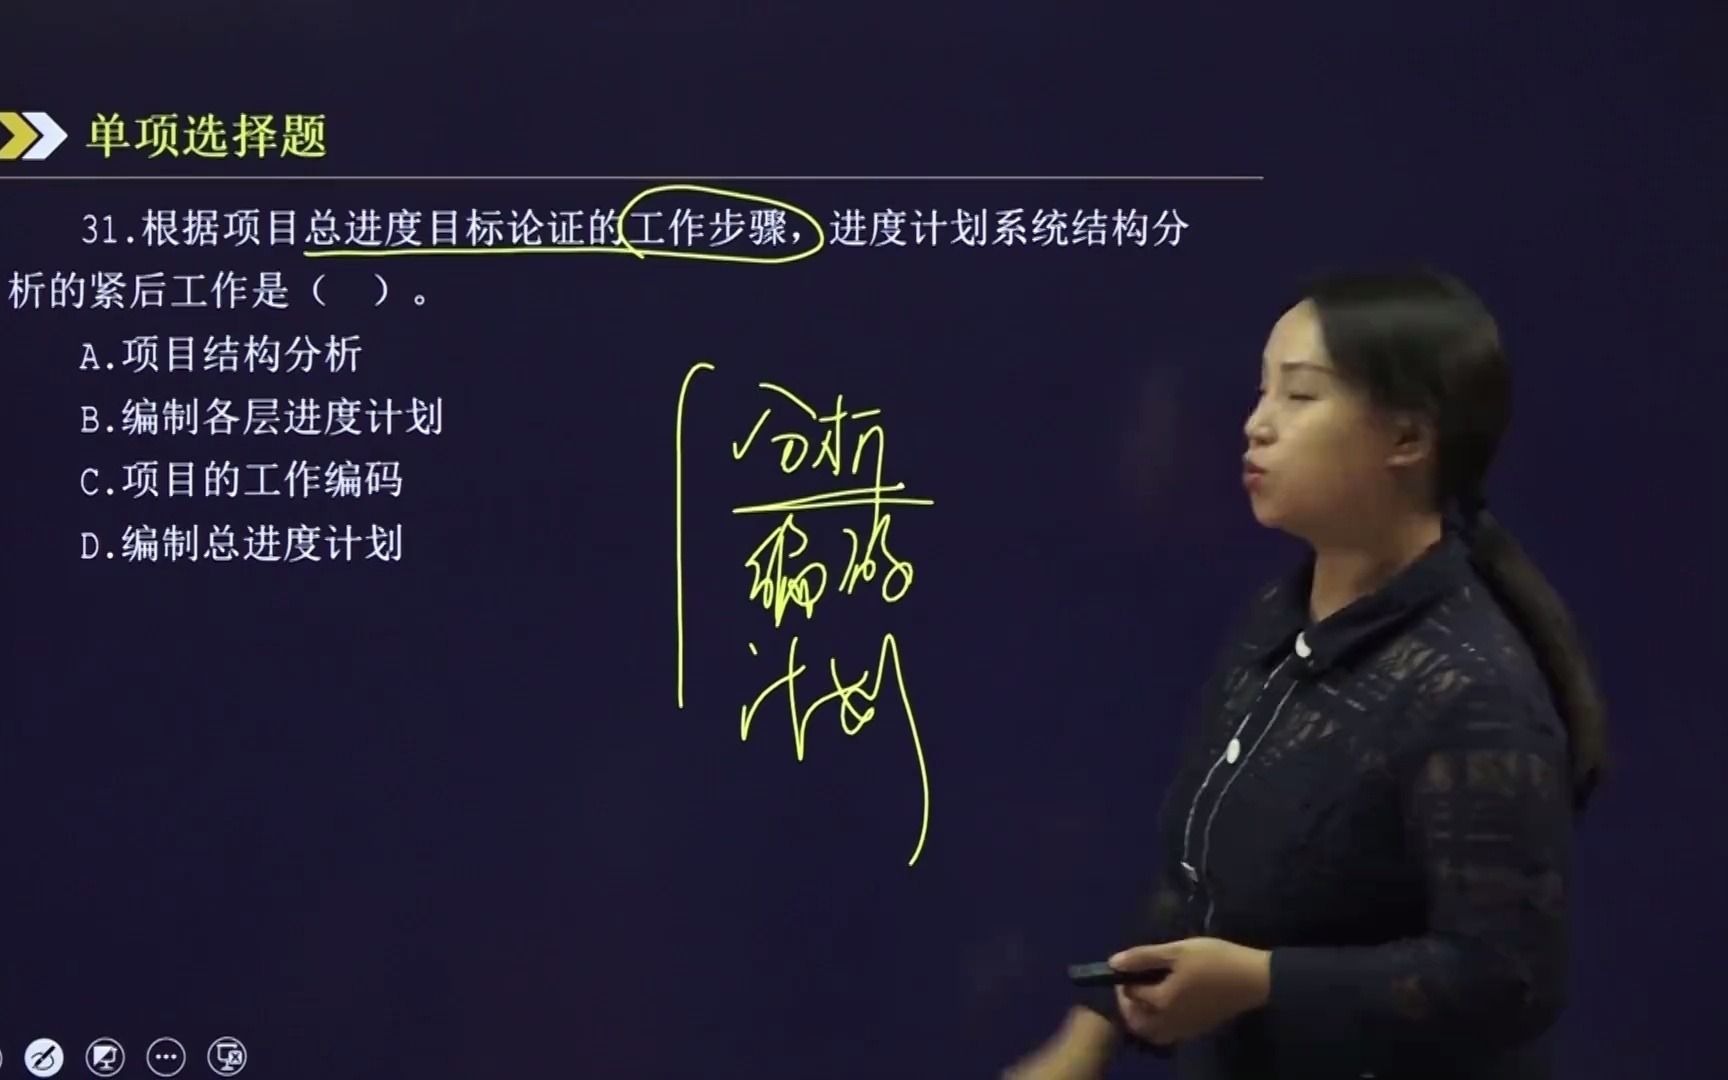 单项选择题
31.根据项目总进度目标论证的工作步骤，进度计划系统结构分
析的紧后工作是（　）。
A.项目结构分析
B.编制各层进度计划
C.项目的工作编码
D.编制总进度计划
分析
编码
计划